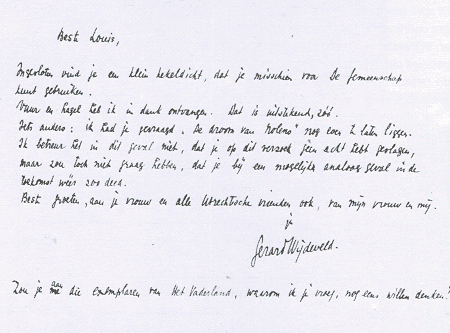 Beste Louis,
Ingesloten vind je een klein hekeldicht, dat je misschien voor De Gemeenschap
kunt gebruiken.
Vuur en Hagel heb ik in dank ontvangen. Dat is uitstekend, zoo.
Iets anders: ik had je gevraagd „De droom van Molens" nog even te laten liggen.
Ik betreur het in dit geval niet, dat je op dit verzoek géén acht hebt geslagen,
maar zou toch niet graag hebben, dat je bij een mogelijk analoog geval in de
toekomst wéér zoo deed.
Beste groeten, aan je vrouw en alle Utrechtsche vrienden ook, van mijn vrouw en mij.
je
Gerard Wijdeveld.
Zou je aan me die exemplaren van Het Vaderland, waarom ik je vroeg, nog eens willen denken?